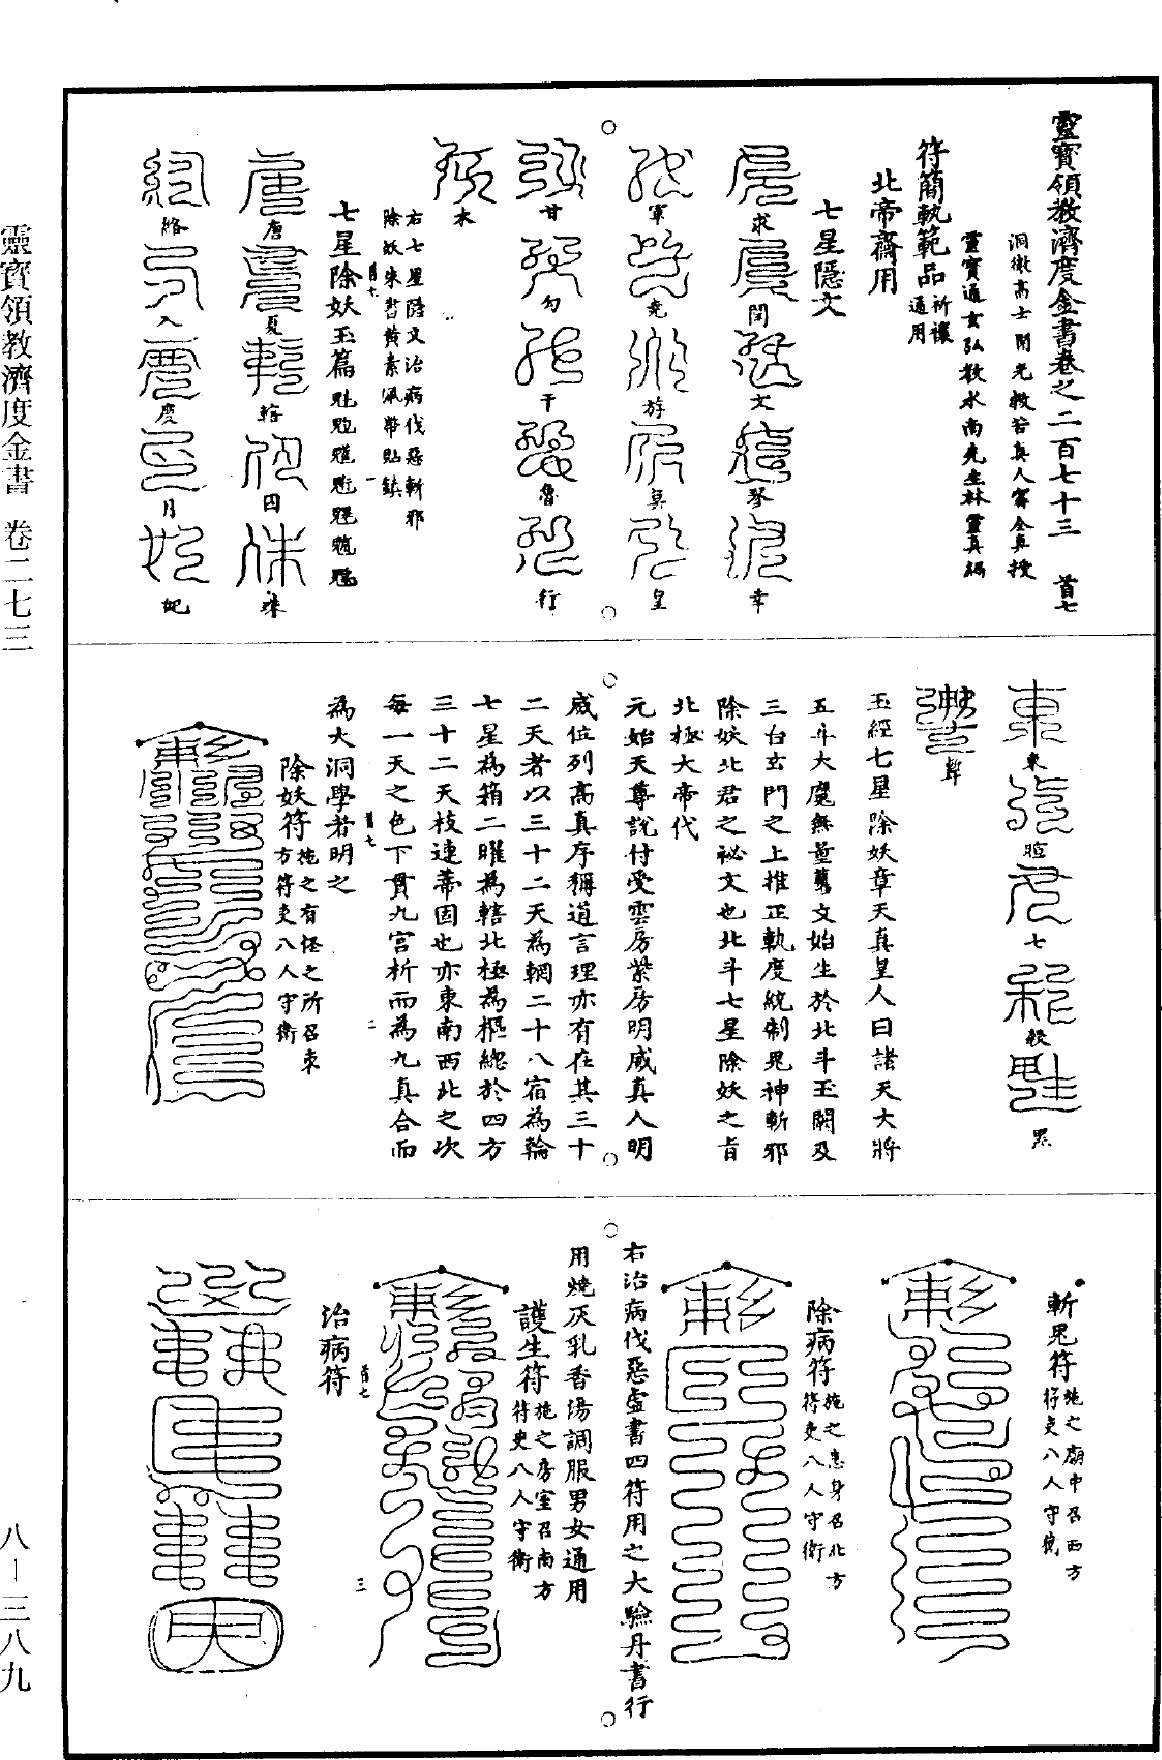 靈寶領教濟度金書卷之二百七十三 首七
洞微高士開光救苦真人甯全真授
靈寶通玄弘教水南先生林靈真編
符簡軌範品祈禳通用
北帝齋用
七星隱文
求 閉 文 琴 幸
軍 堯 游 莫 皇
甘 勾 干 魯 行
本
右七星隱文治病伐惡斬邪
除妖朱書黃素佩帶貼鎮
一
七星除妖玉篇
唐 夏 轄 因 殊
絡 入 慶 月 妃
東 暄 七 殺 黑
聲
玉經七星除妖章天真皇人曰諸天大將
五斗大魔無量舊文始生於北斗玉闕及
三台玄門之上推正軌度統制鬼神斬邪
除妖北君之祕文也北斗七星除妖之旨
北極大帝代
元始天尊說付受雲房紫房明威真人明
威位列高真序稱道言理亦有在其三十
二天者以三十二天為輞二十八宿為輪
七星為箱二曜為轄北極為樞總於四方
三十二天枝連蒂固也亦東南西北之次
每一天之色下貫九宮析而為九真合而
首七 二
為大洞學者明之
除妖符施之有怪之所召東方符吏八人守衛
斬鬼符施之廟中召西方符吏八人守衛
除病符施之患身召北方符吏八人守衛
右治病伐惡虛書四符用之大驗丹書行
用燒灰乳香湯調服男女通用
護生符施之房室召南方符吏八人守衛
首七 三
治病符
靈寶領教濟度金書 卷二七三
八—三八九